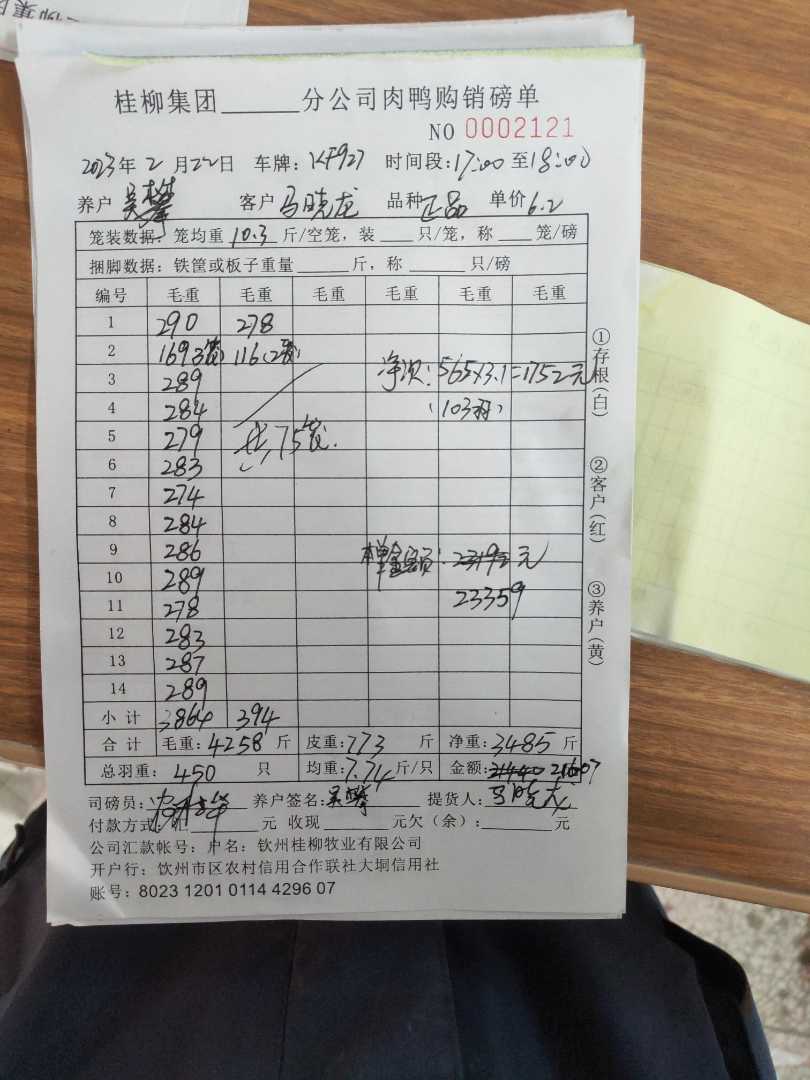 桂柳集团______分公司肉鸭购销磅单
NO 0002121
2023年2月22日 车牌:KF927 时间段:17:00至18:00
养户 吴攀 客户 马晓龙 品种 正品 单价 6.2
笼装数据:笼均重10.3斤/空笼,装___只/笼,称___笼/磅
捆脚数据:铁筐或板子重量______斤,称____只/磅
编号 毛重 毛重 毛重 毛重 毛重 毛重
1 290 278
2 169(3笼) 116(2笼)
3 289 净次:565×3.1=1752元
4 284 (103羽)
5 279 共75笼.
6 283
7 274
8 284
9 286 本单金额: 元
10 289
11 278 23359
12 283
13 287
14 289
小计 3864 394
合计 毛重:4258斤 皮重:773斤 净重:3485斤
总羽重:450只 均重:7.74斤/只 金额:21607
司磅员: 养户签名:吴攀 提货人:马晓龙
付款方式:汇________元 收现________元欠(余):________元
公司汇款帐号:户名:钦州桂柳牧业有限公司
开户行:钦州市区农村信用合作联社大垌信用社
账号:8023 1201 0114 4296 07
①存根(白)
②客户(红)
③养户(黄)